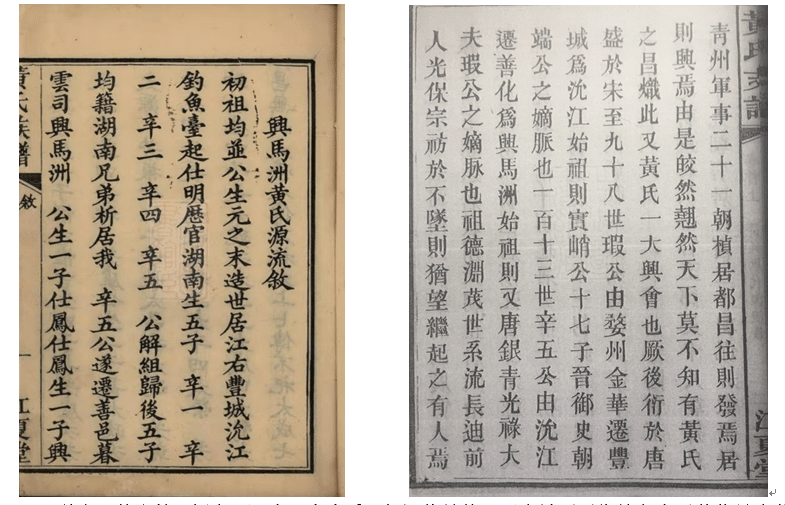 興馬洲黃氏源流敘
初祖均並公生元之末造世居江右豐城沇江
釣魚臺起仕明歷官湖南生五子 辛一 辛
二 辛三 辛四 辛五 公解組歸後五子
均籍湖南兄弟析居我 辛五公遂遷善邑暮
雲司興馬洲 公生一子仕鳳仕鳳生一子興
黃氏族譜 敘 一 江夏堂
黃氏支譜 江夏堂
青州軍事二十一朝楨居都昌往則發焉居
則興焉由是皎然翹然天下莫不知有黃氏
之昌熾此又黃氏一大興會也厥後衍於唐
盛於宋至九十八世瑕公由婺州金華遷豐
城爲沇江始祖則實峭公十七子晉御史朝
端公之嫡脈也一百十三世辛五公由沇江
遷善化爲興馬洲始祖則又唐銀青光祿大
夫瑕公之嫡脉也祖德淵茂世系流長迪前
人光保宗祊於不墜則猶望繼起之有人焉